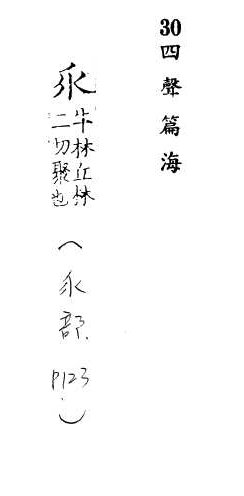 30四聲篇海
乑牛林丘林二切聚也
（乑部 P123）